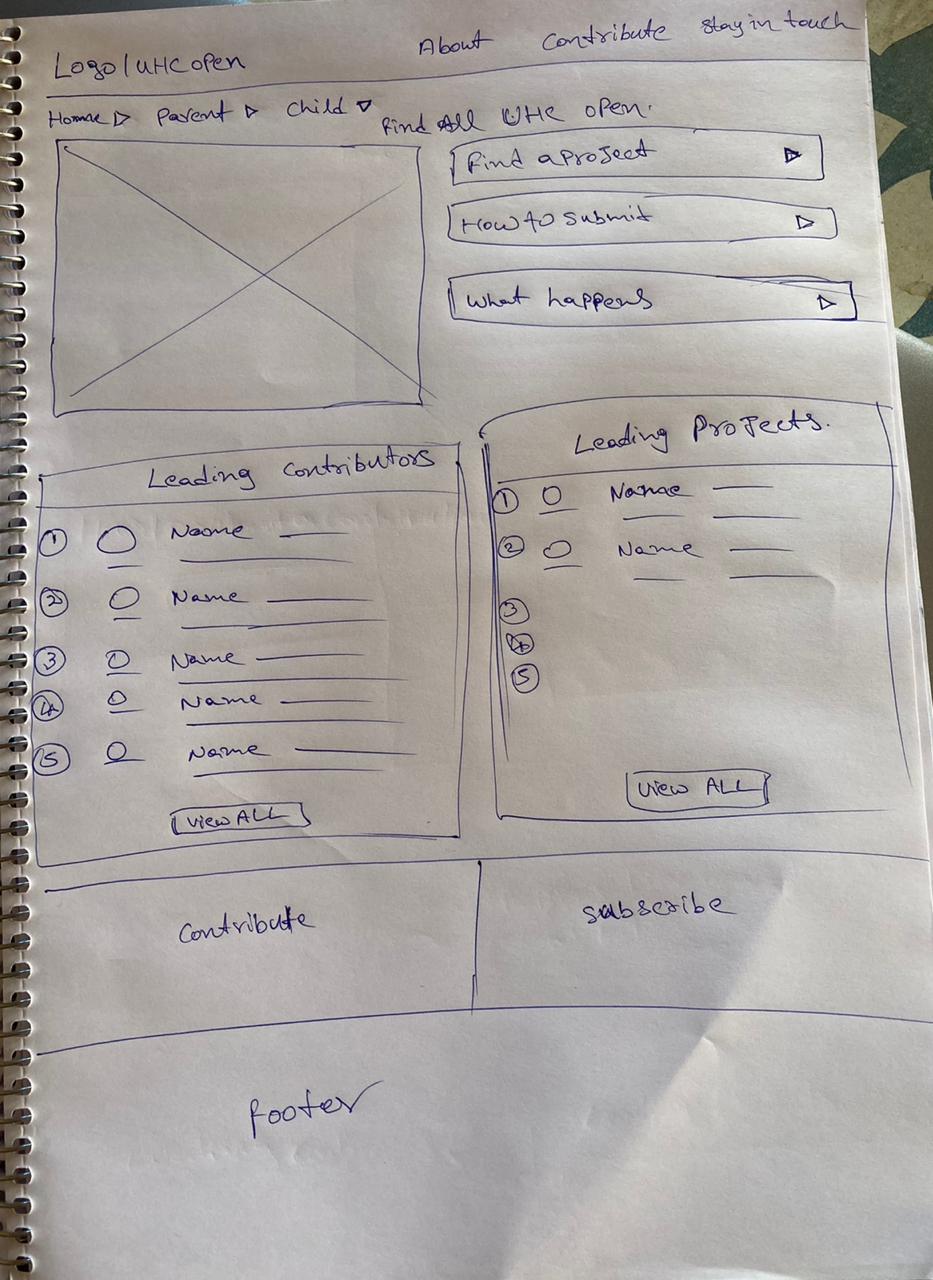 Logo / UHC open
About Contribute Stay in touch
Home Parent Child
Find All UHC open.
Find a project
How to submit
What happens
Leading Contributors
1 Name
2 Name
3 Name
4 Name
5 Name
View ALL
Leading Projects.
1 Name
2 Name
3
4
5
View ALL
Contribute
Subscribe
footer